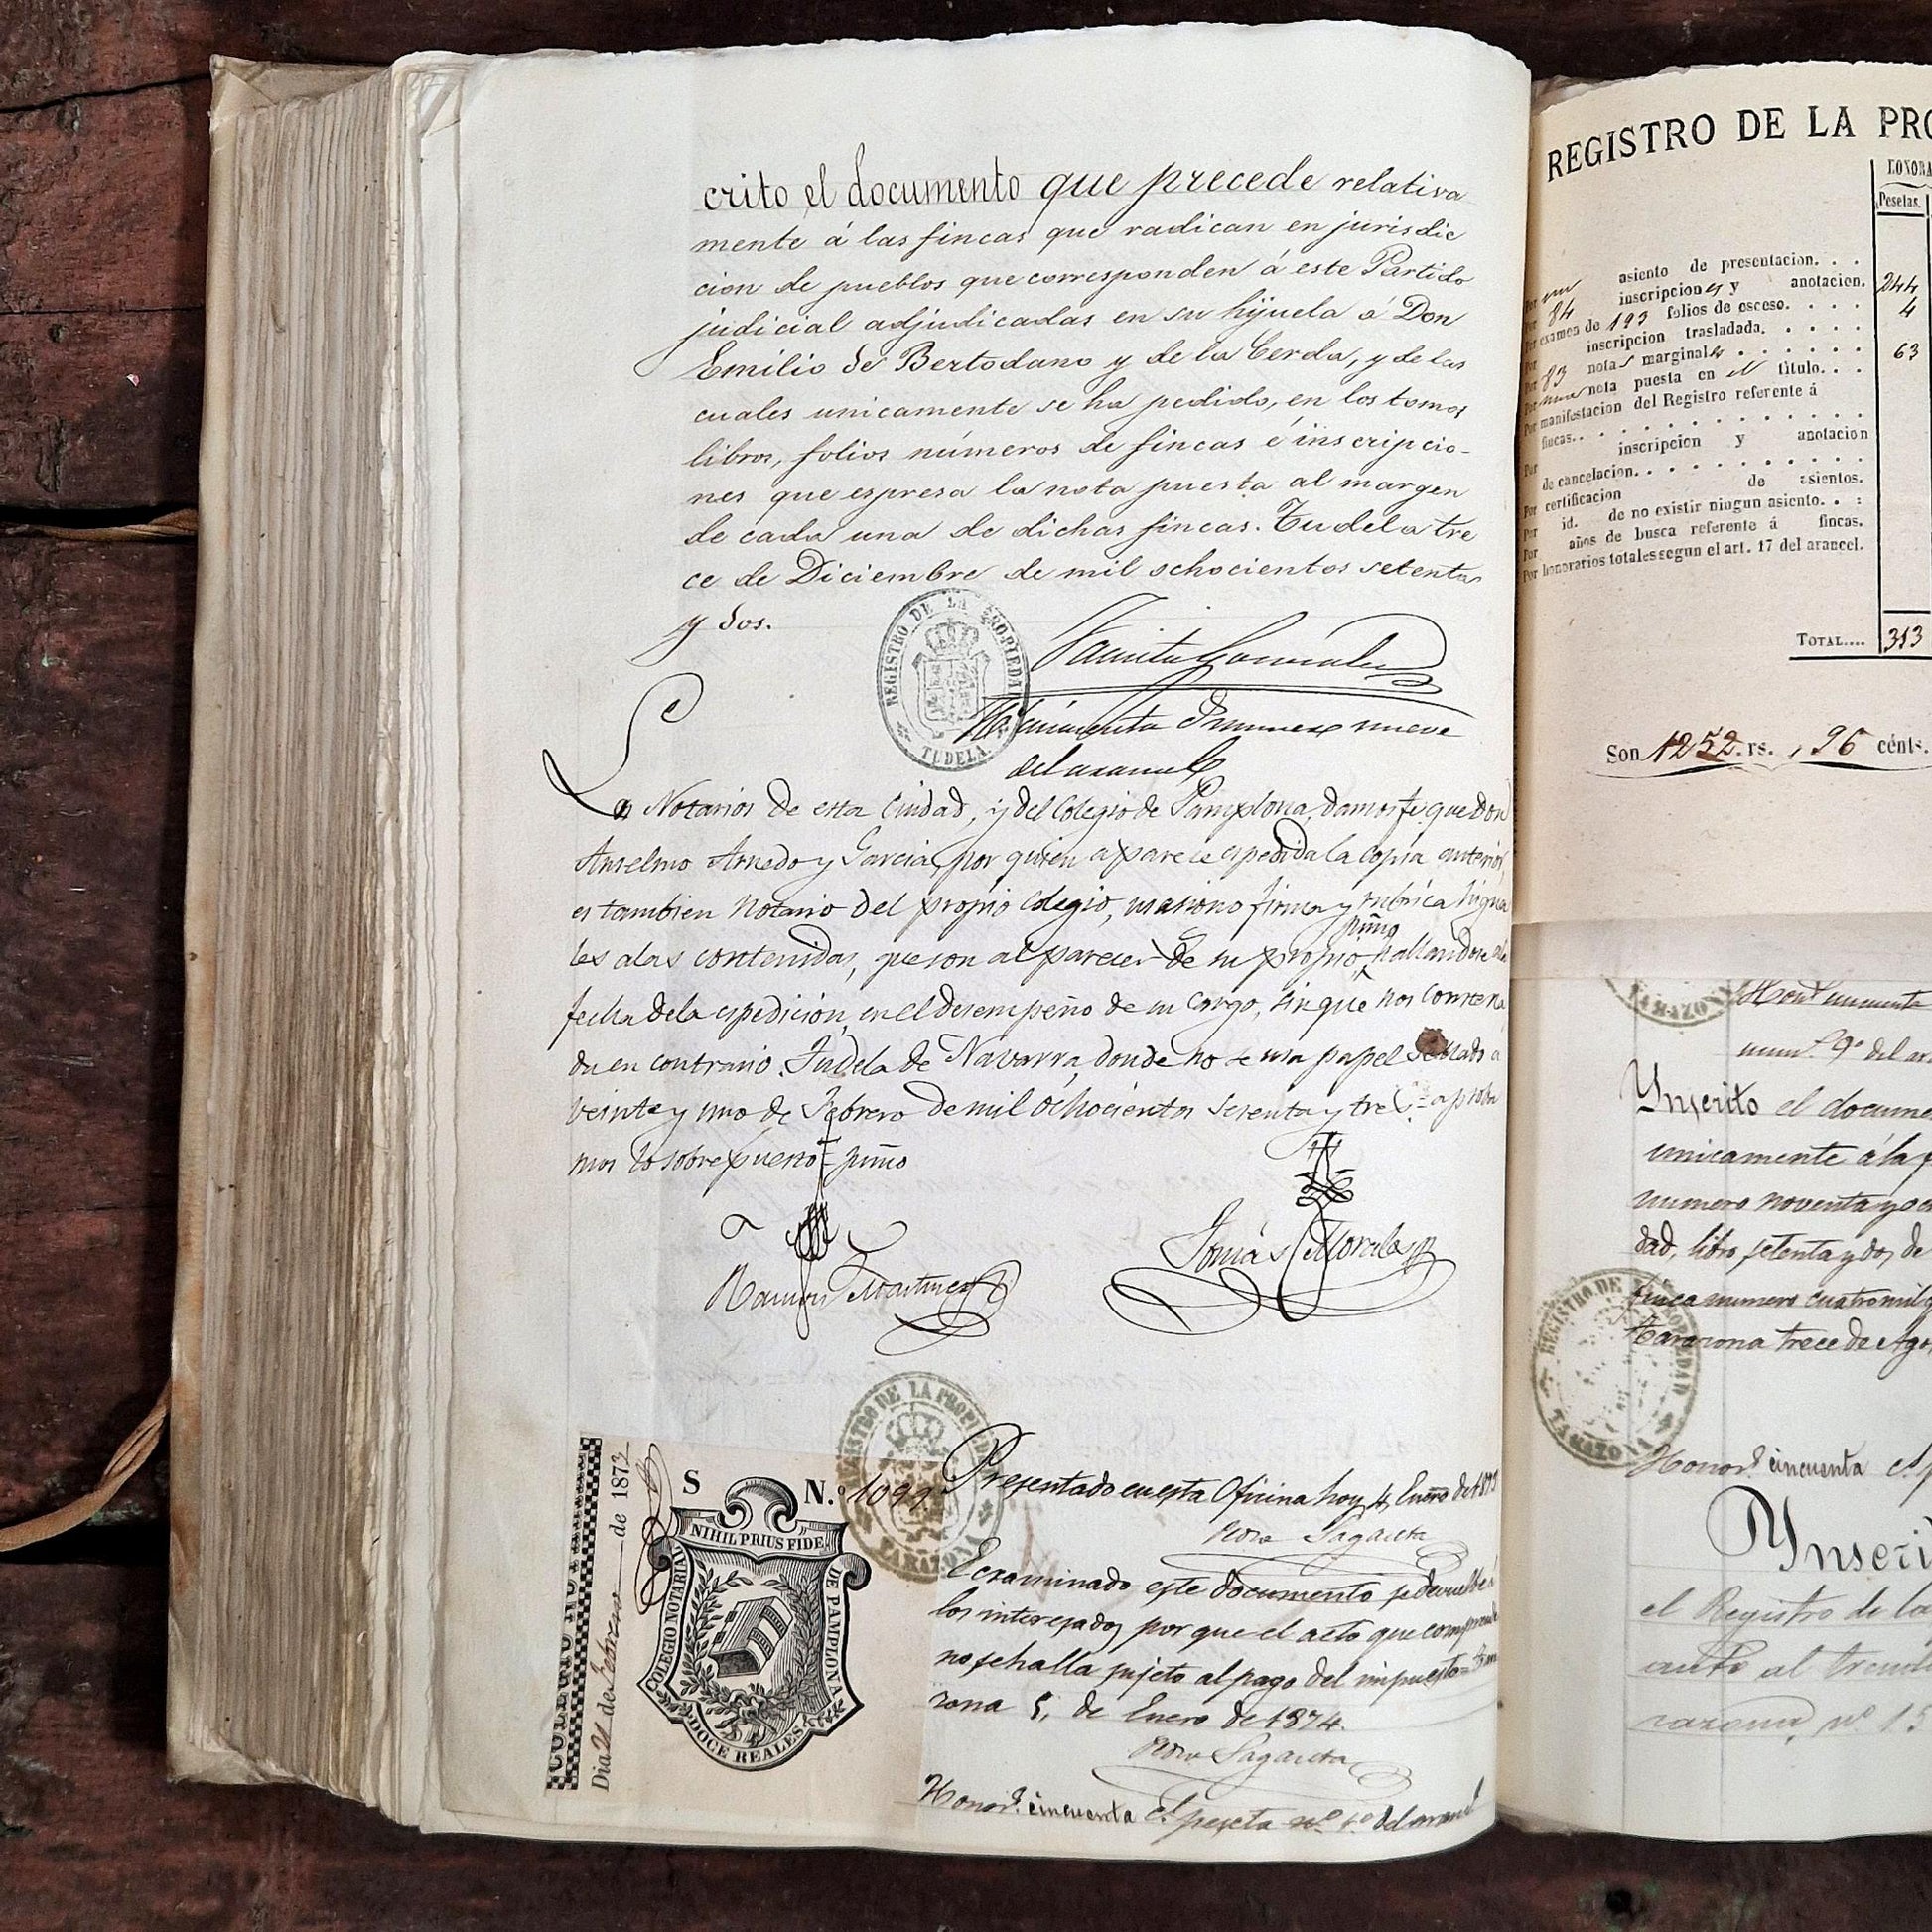 crito el documento que precede relativa
mente á las fincas que radican en jurisdic
cion de pueblos que corresponden á este Partido
judicial adjudicadas en su hijuela á Don
Emilio de Bertodano y de la Cerda, y de las
cuales unicamente se ha pedido, en los tomos
libros, folios números de fincas é inscripcio-
nes que espresa la nota puesta al margen
de cada una de dichas fincas. Tudela tre
ce de Diciembre de mil ochocientos setenta
y dos.
REGISTRO DE LA PROPIEDAD
TUDELA
Jacinto Gonzalez
nueve
del arancel
Los Notarios de esta Ciudad, y del Colegio de Pamplona, damos fe que Don
Anselmo Arnedo y Garcia, por quien aparece espedida la copia anterior,
es tambien Notario del propio Colegio, y rubrica higua
puño
les alas contenidas, que son al parecer de su propio, hallandose ala
fecha dela espedición, en el desempeño de su cargo, sin que nos conste na
da en contrario. Tudela de Navarra, donde no se usa papel sellado a
veinte y uno de Febrero de mil ochocientos setenta y tres = aproba
mos lo sobrepuesto = puño
Ramon Martinez
Tomás Morales
REGISTRO DE LA PROPIEDAD
TARAZONA
Dia 21 de Febrero de 1873
S N.º 1099
NIHIL PRIUS FIDE
COLEGIO NOTARIAL DE PAMPLONA
DOCE REALES
Presentado en esta Oficina hoy 4 Enero de
Pedro Sagasta
Ecsaminado este documento se devuelve á
los interesados por que el acto que comprende
no se halla sujeto al pago del impuesto = Tara
zona 5, de Enero de 1874.
Pedro Sagasta
Honor.s cincuenta c.s peseta n.º 1º del arancel
REGISTRO DE LA PRO
HONORA
Pesetas.
Por un asiento de presentacion. . .
Por 84 inscripciones y anotacion. 244
Por examen de 193 folios de esceso. . . . 4
Por inscripcion trasladada. . . . .
Por 83 notas marginales . . . . . . 63
Por una nota puesta en el titulo. . .
Por manifestacion del Registro referente á
fincas. . . . . . . . . . . . .
Por inscripcion y anotacion
de cancelacion. . . . . . . . . .
Por certificacion de asientos.
Por id. de no existir ningun asiento. . :
Por años de busca referente á fincas.
Por honorarios totales segun el art. 17 del arancel.
TOTAL.... 313
Son 1252 rs. , 96 cénts.
TARAZONA
num.º 9º del ar
Ynscrito el docume
unicamente á la f
numero noventa y o
dad, libro setenta y dos de
finca numero cuatro mil
Tarazona trece de Ago
REGISTRO DE LA PROPIEDAD
TARAZONA
Honor.s cincuenta c.s p
Ynscri
el Registro de la